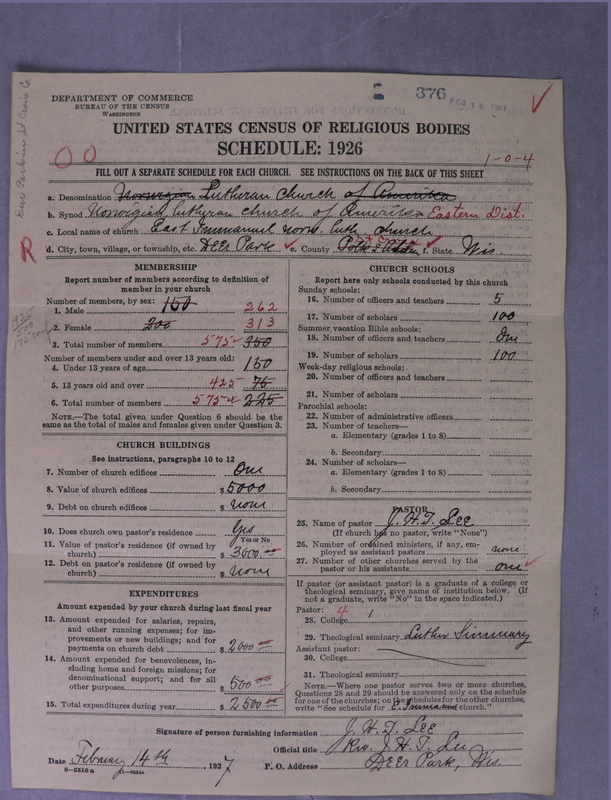 DEPARTMENT OF COMMERCE
BUREAU OF THE CENSUS
WASHINGTON
376
FEB 16 1927
UNITED STATES CENSUS OF RELIGIOUS BODIES
SCHEDULE: 1926
1-0-4
OO
FILL OUT A SEPARATE SCHEDULE FOR EACH CHURCH. SEE INSTRUCTIONS ON THE BACK OF THIS SHEET
a. Denomination Norwegian Lutheran Church of Amerika
b. Synod Norwegian Lutheran church of Amerika Eastern Dist.
c. Local name of church East Immanuel Norw. Luth. church
d. City, town, village, or township, etc. Deer Park e. County Polk f. State Wis.
R
MEMBERSHIP
Report number of members according to definition of
member in your church
Number of members, by sex:
1. Male 150 262
2. Female 200 313
3. Total number of members 575 350
Number of members under and over 13 years old:
4. Under 13 years of age 150
5. 13 years old and over 425 75
6. Total number of members 575 225
NOTE.—The total given under Question 6 should be the
same as the total of males and females given under Question 3.
CHURCH BUILDINGS
See instructions, paragraphs 10 to 12
7. Number of church edifices One
8. Value of church edifices $ 5000
9. Debt on church edifices $ none
10. Does church own pastor's residence Yes
Yes or No
11. Value of pastor's residence (if owned by
church) $ 3000.00
12. Debt on pastor's residence (if owned by
church) $ none
EXPENDITURES
Amount expended by church during last fiscal year
13. Amount expended for salaries, repairs,
and other running expenses; for im-
provements or new buildings; and for
payments on church debt $ 2000.00
14. Amount expended for benevolences, in-
cluding home and foreign missions; for
denominational support; and for all
other purposes $ 500.00
15. Total expenditures during year $ 2500.00
CHURCH SCHOOLS
Report here only schools conducted by this church
Sunday schools:
16. Number of officers and teachers 5
17. Number of scholars 100
Summer vacation Bible schools:
18. Number of officers and teachers One
19. Number of scholars 100
Week-day religious schools:
20. Number of officers and teachers
21. Number of scholars
Parochial schools:
22. Number of administrative officers
23. Number of teachers—
a. Elementary (grades 1 to 8)
b. Secondary
24. Number of scholars—
a. Elementary (grades 1 to 8)
b. Secondary
PASTOR
25. Name of pastor J. H. T. Lee
(If church has no pastor, write "None")
26. Number of ordained ministers, if any, em-
ployed as assistant pastors none
27. Number of other churches served by the
pastor or his assistants one
If pastor (or assistant pastor) is a graduate of a college or
theological seminary, give name of institution below. (If
not a graduate, write "No" in the space indicated.)
Pastor: 4 1
28. College
29. Theological seminary Luther Siminary
Assistant pastor:
30. College
31. Theological seminary
NOTE.—Where one pastor serves two or more churches,
Questions 28 and 29 should be answered only on the schedule
for one of the churches; on the schedules for the other churches,
write "See schedule for E. Immanuel church."
Signature of person furnishing information J. H. T. Lee
Official title Rev. J. H. T. Lee
Date Februay 14th, 1927 P. O. Address Deer Park, Wis
8-5518a